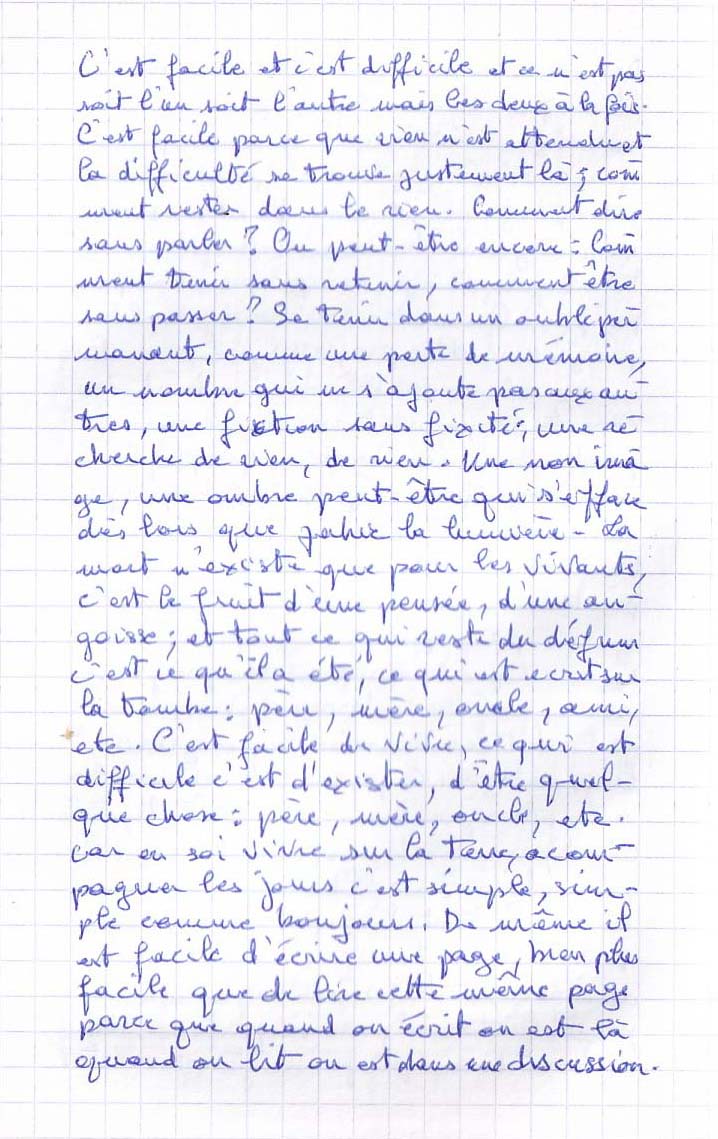 C'est facile et c'est difficile et ce n'est pas
soit l'un soit l'autre mais les deux à la fois.
C'est facile parce que rien n'est attendu et
la difficulté se trouve justement là ; com
ment rester dans le rien. Comment dire
sans parler ? Ou peut-être encore : Com
ment tenir sans retenir, comment être
sans passer ? Se tenir dans un oubli per
manent, comme une perte de mémoire,
un nombre qui ne s'ajoute pas aux au-
tres, une fiction sans fixité, une re
cherche de rien, de rien. Une non ima
ge, une ombre peut-être qui s'efface
dès lors que jahir la lumière - La
mort n'existe que pour les vivants,
c'est le fruit d'une pensée, d'une an-
goisse ; et tout ce qui reste du défun
c'est ce qu'il a été, ce qui est ecrit sur
la tombe : père, mère, oncle, ami,
etc. C'est facile de vivre, ce qui est
difficile c'est d'exister, d'être quel-
que chose : père, mère, oncle, etc.
car en soi vivre sur la terre, acom-
pagner les jours c'est simple, sim-
ple comme bonjour. De même il
est facile d'écrire une page, bien plus
facile que de lire cette même page
parce que quand on écrit on est là
quand on lit on est dans une discussion.